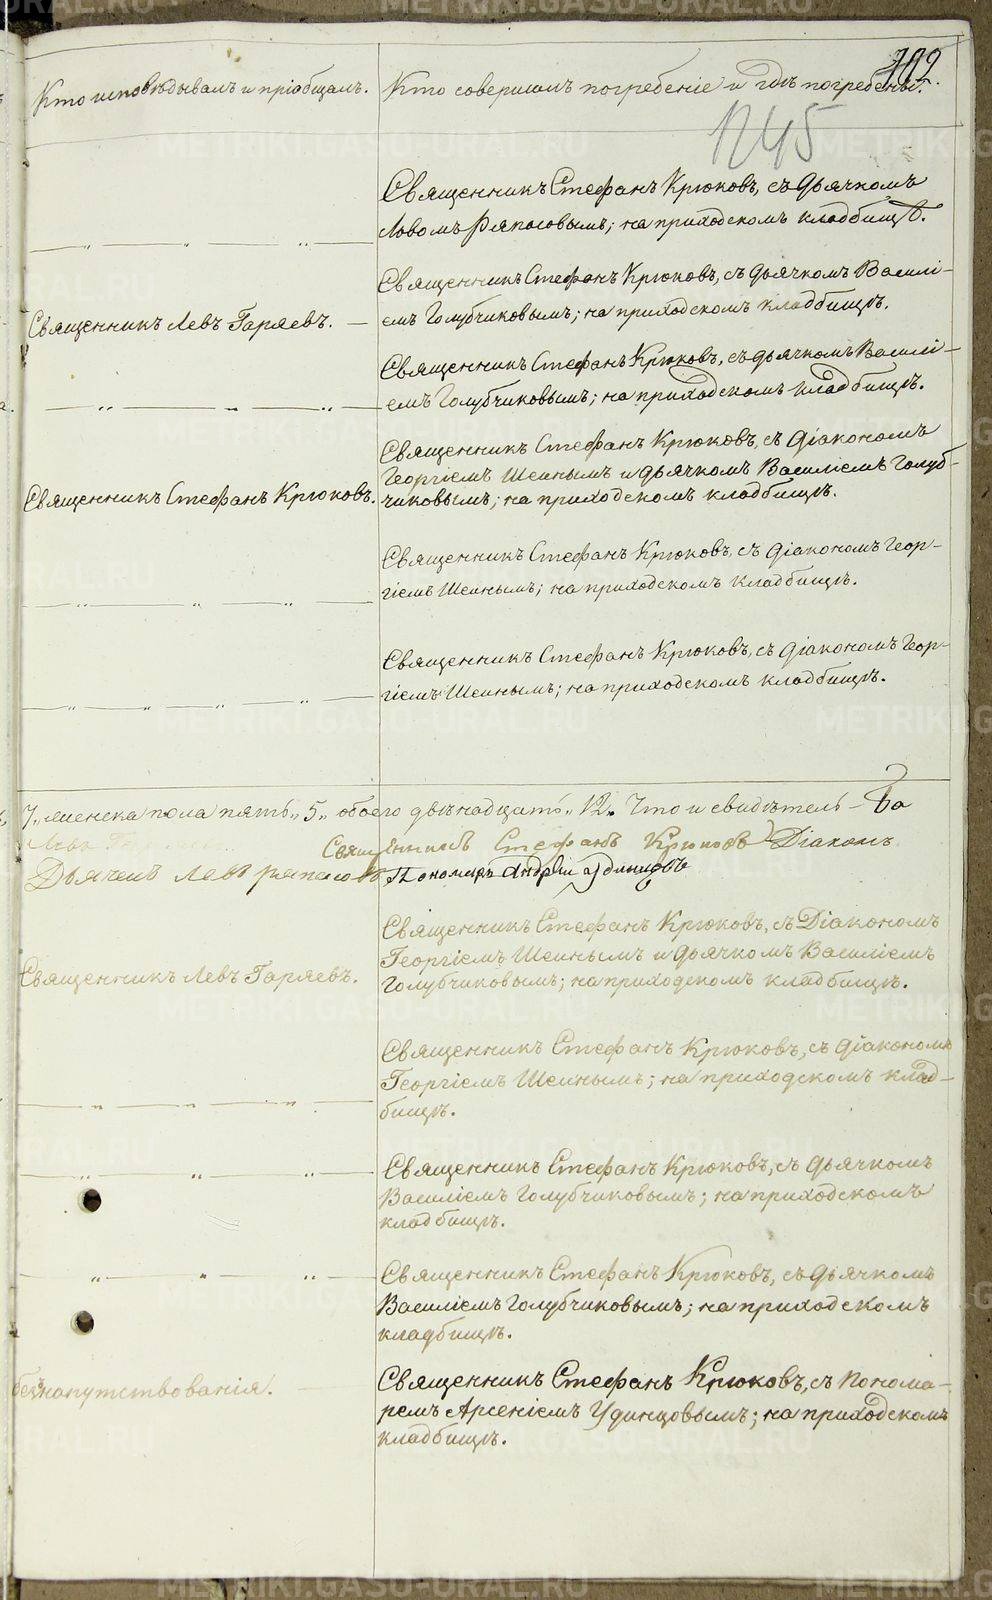 702.
Кто исповѣдывалъ и пріобщалъ.
Кто совершалъ погребеніе и гдѣ погребены.
1245
Священникъ Стефанъ Крюковъ, съ дьячкомъ
Львомъ Ряпасовымъ; на приходскомъ кладбищѣ.
Священникъ Левъ Гаряевъ.
Священникъ Стефанъ Крюковъ, съ дьячкомъ Василі-
емъ Голубчиковымъ; на приходскомъ кладбищѣ.
Священникъ Стефанъ Крюковъ, съ дьячкомъ Василі-
емъ Голубчиковымъ; на приходскомъ кладбищѣ.
Священникъ Стефанъ Крюковъ.
Священникъ Стефанъ Крюковъ, съ діакономъ
Георгіемъ Шеинымъ и дьячкомъ Василіемъ Голуб-
чиковымъ; на приходскомъ кладбищѣ.
Священникъ Стефанъ Крюковъ, съ діакономъ Геор-
гіемъ Шеинымъ; на приходскомъ кладбищѣ.
Священникъ Стефанъ Крюковъ, съ діакономъ Геор-
гіемъ Шеинымъ; на приходскомъ кладбищѣ.
7„ женска пола пять„ 5„ обоего двѣнадцать„ 12„ Что и свидѣтель-
Священникъ Стефанъ Крюковъ Діаконъ
Дьячекъ Левъ Ряпасовъ Пономарь Андрей Удинцовъ
Священникъ Левъ Гаряевъ.
Священникъ Стефанъ Крюковъ, съ Діакономъ
Георгіемъ Шеинымъ и дьячкомъ Василіемъ
Голубчиковымъ; на приходскомъ кладбищѣ.
Священникъ Стефанъ Крюковъ, съ діакономъ
Георгіемъ Шеинымъ; на приходскомъ клад-
бищѣ.
Священникъ Стефанъ Крюковъ, съ дьячкомъ
Василіемъ Голубчиковымъ; на приходскомъ
кладбищѣ.
Священникъ Стефанъ Крюковъ, съ дьячкомъ
Василіемъ Голубчиковымъ; на приходскомъ
кладбищѣ.
без напутствованія.
Священникъ Стефанъ Крюковъ, съ понома-
ремъ Арсеніемъ Удинцовымъ; на приходскомъ
кладбищѣ.
METRIKI.GASO-URAL.RU